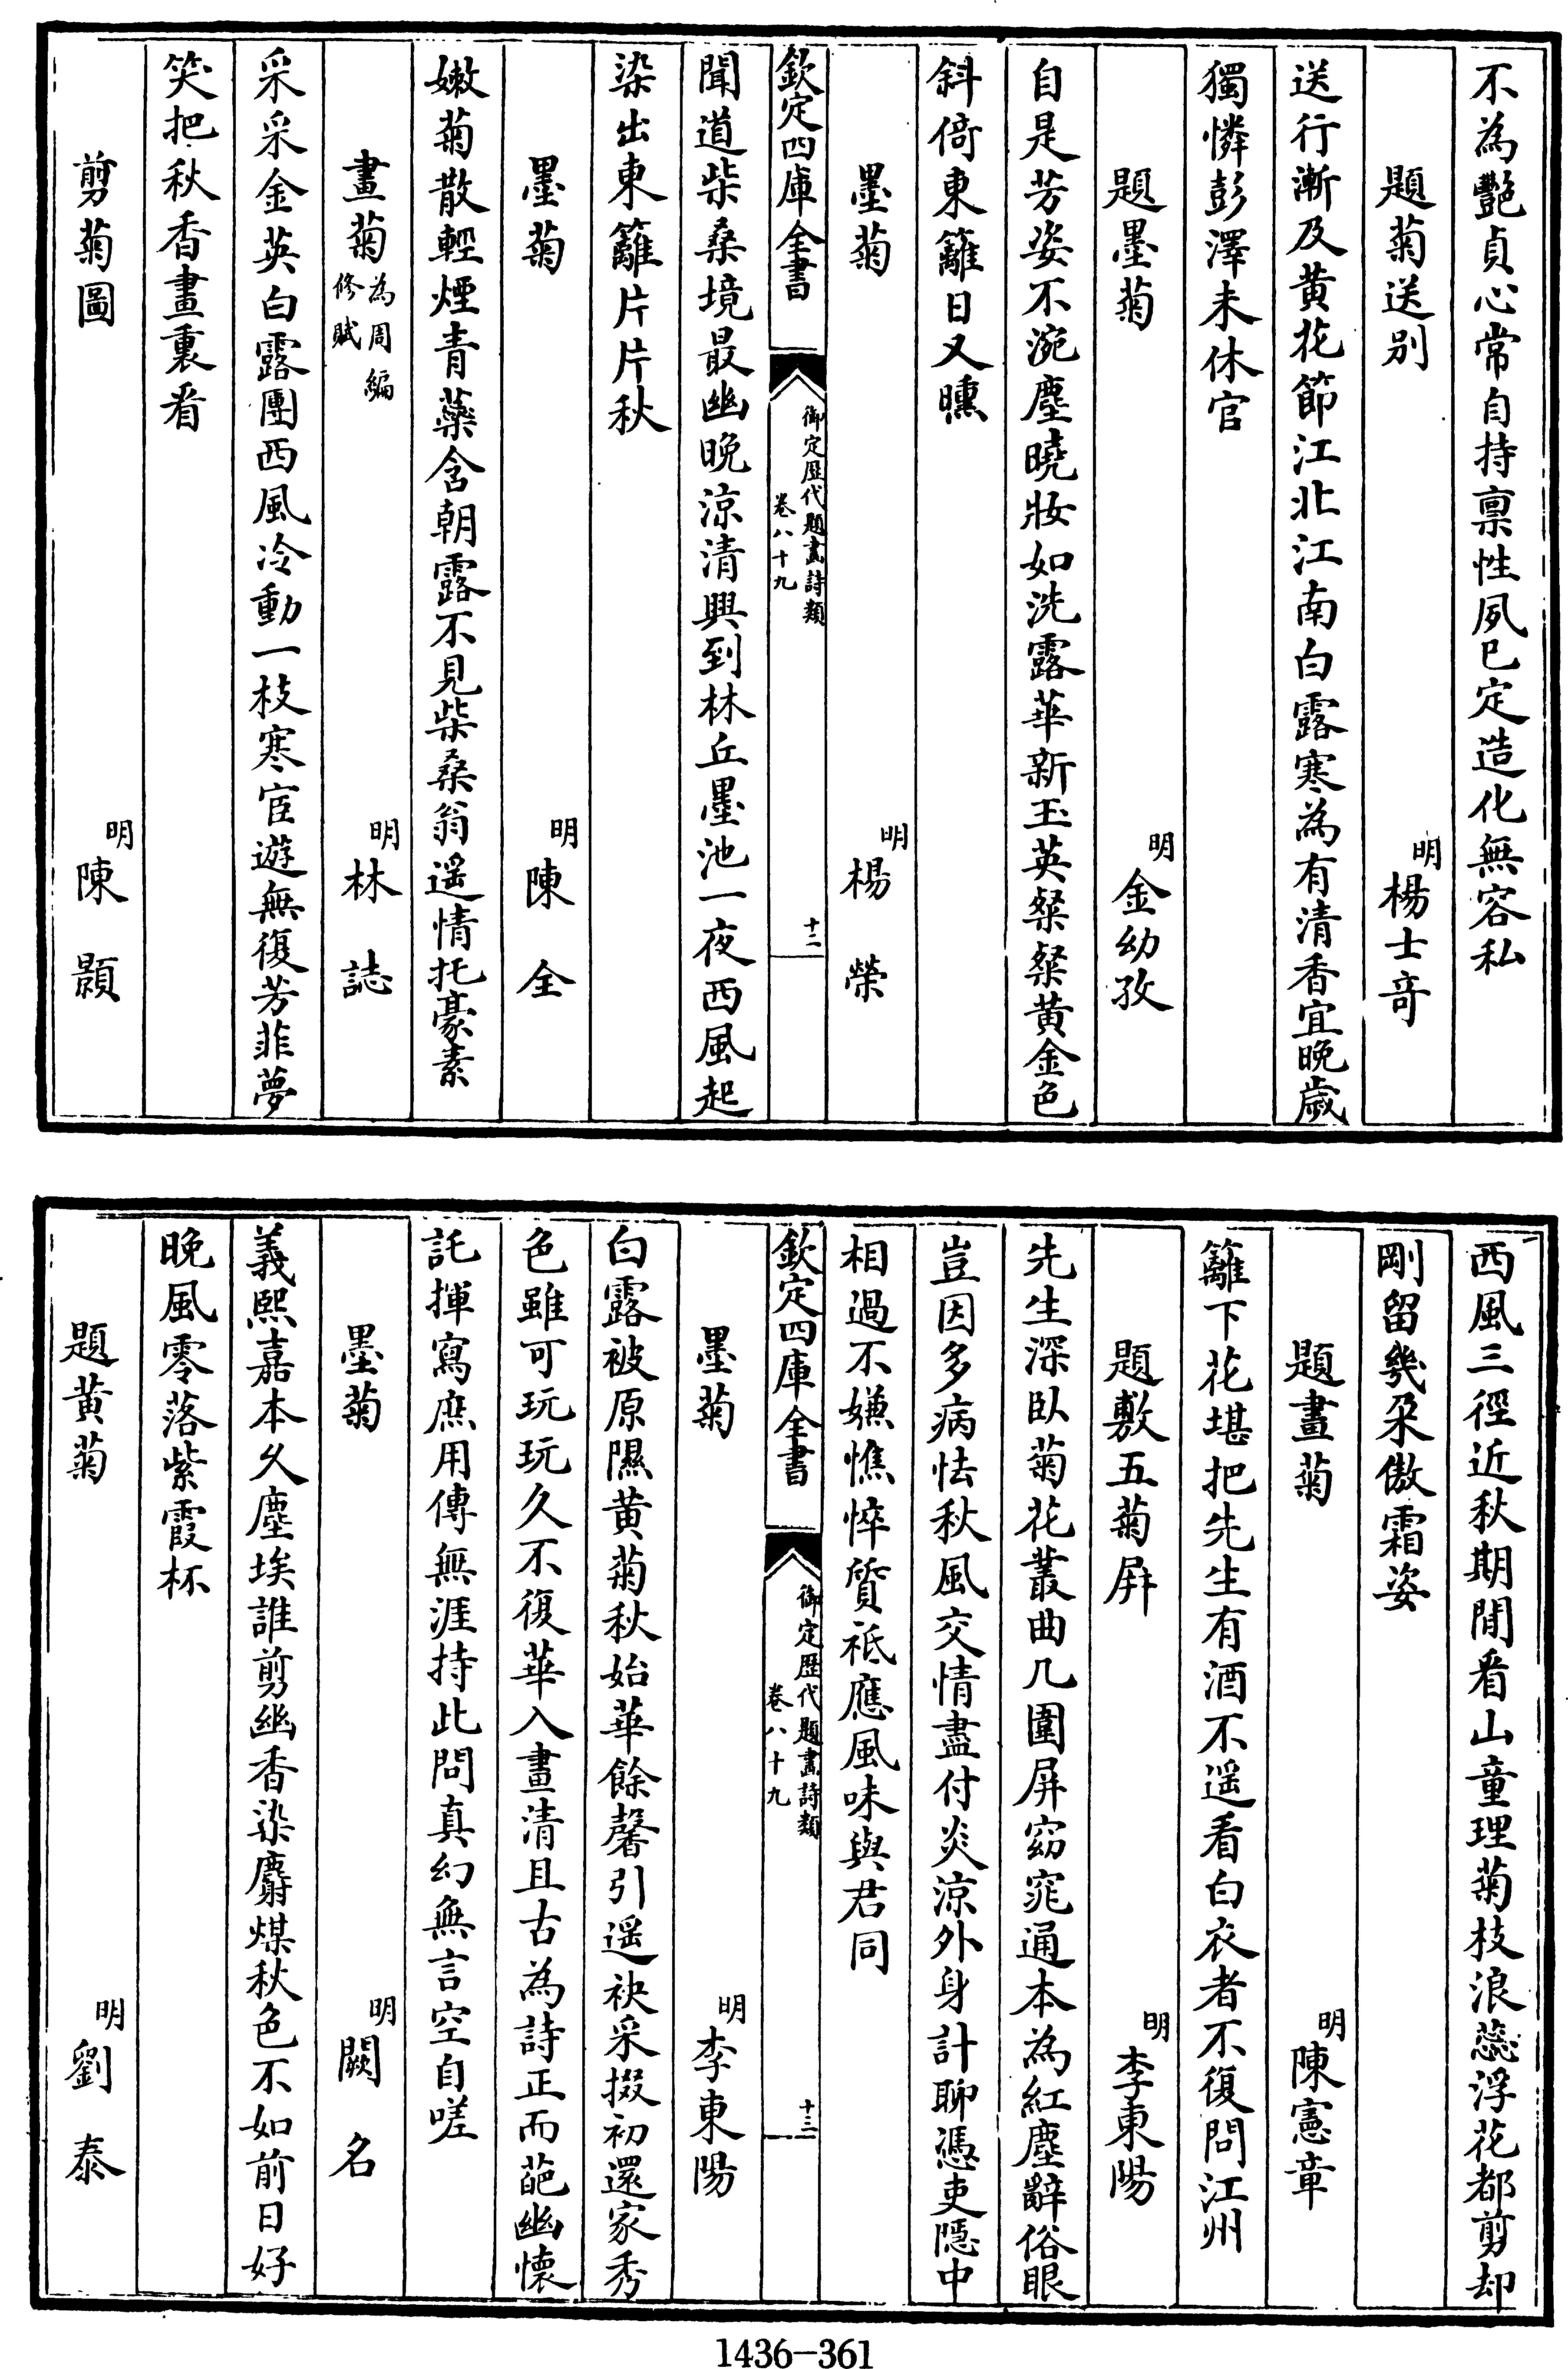 不為艶貞心常自持稟性夙已定造化無容私
題菊送别
明
楊士竒
送行漸及黄花節江北江南白露寒為有清香宜晚歲
獨憐彭澤未休官
題墨菊
明
金幼孜
自是芳姿不涴塵曉妝如洗露華新玉英粲粲黄金色
斜倚東籬日又曛
墨菊
明
楊榮
欽定四庫全書
御定歴代題畫詩類
卷八十九
十二
聞道柴桑境最幽晚涼清興到林丘墨池一夜西風起
染出東籬片片秋
墨菊
明
陳全
嫩菊散輕煙青蘂含朝露不見柴桑翁遥情托豪素
畫菊
為周編
修賦
明
林誌
采采金英白露團西風冷動一枝寒宦遊無復芳菲夢
笑把秋香畫裏看
剪菊圖
明
陳顥
西風三徑近秋期閒看山童理菊枝浪蕊浮花都剪却
剛留幾朶傲霜姿
題畫菊
明
陳憲章
籬下花堪把先生有酒不遥看白衣者不復問江州
題敷五菊屏
明
李東陽
先生深臥菊花叢曲几圍屏窈窕通本為紅塵辭俗眼
豈因多病怯秋風交情盡付炎涼外身計聊憑吏隠中
相過不嫌憔悴質祗應風味與君同
欽定四庫全書
御定歴代題畫詩類
卷八十九
十三
墨菊
明
李東陽
白露被原隰黄菊秋始華餘馨引遥袂采掇初還家秀
色雖可玩玩久不復華入畫清且古為詩正而葩幽懷
託揮寫庶用傳無涯持此問真幻無言空自嗟
墨菊
明
闕名
義熙嘉本久塵埃誰剪幽香染麝煤秋色不如前日好
晚風零落紫霞杯
題黄菊
明
劉泰
1436-361